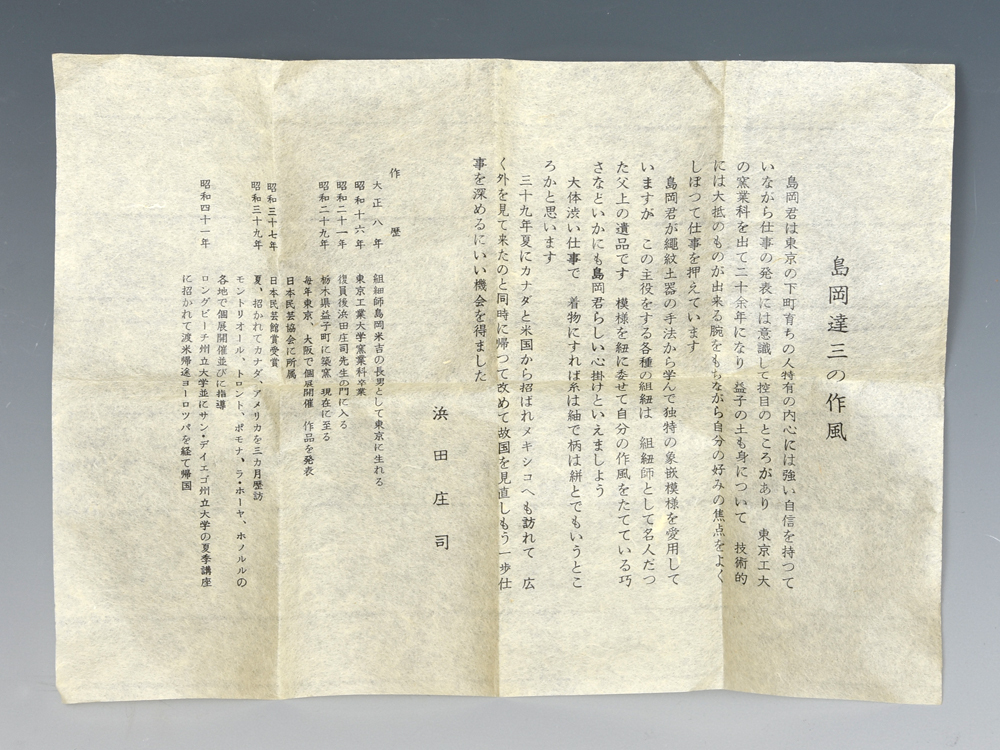 島岡達三の作風
島岡君は東京の下町育ちの人特有の内心には強い自信を持つて
いながら仕事の発表には意識して控目のところがあり　東京工大
の窯業科を出て二十余年になり　益子の土も身について　技術的
には大抵のものが出来る腕をもちながら自分の好みの焦点をよく
しぼつて仕事を押えています
島岡君が繩紋土器の手法から学んで独特の象嵌模様を愛用して
いますが　この主役をする各種の組紐は　組紐師として名人だつ
た父上の遺品です　模様を紐に委せて自分の作風をたてている巧
さなどいかにも島岡君らしい心掛けといえましよう
大体渋い仕事で　着物にすれば糸は紬で柄は絣とでもいうとこ
ろかと思います
三十九年夏にカナダと米国から招ばれメキシコへも訪れて　広
く外を見て来たのと同時に帰つて改めて故国を見直しもう一歩仕
事を深めるにいい機会を得ました
浜田庄司
作歴
大正八年　組細師島岡米吉の長男として東京に生れる
昭和十六年　東京工業大学窯業科卒業
昭和二十一年　復員後浜田庄司先生の門に入る
昭和二十九年　栃木県益子町に築窯　現在に至る
毎年東京、大阪で個展開催　作品を発表
日本民芸協会に所属
昭和三十七年　日本民芸館賞受賞
昭和三十九年　夏、招かれてカナダ、アメリカを三カ月歴訪
モントリオール、トロント、ポモナ、ラ・ホーヤ、ホノルルの
各地で個展開催並びに指導
昭和四十一年　ロングビーチ州立大学並にサン・デイエゴ州立大学の夏季講座
に招かれて渡米帰途ヨーロツパを経て帰国